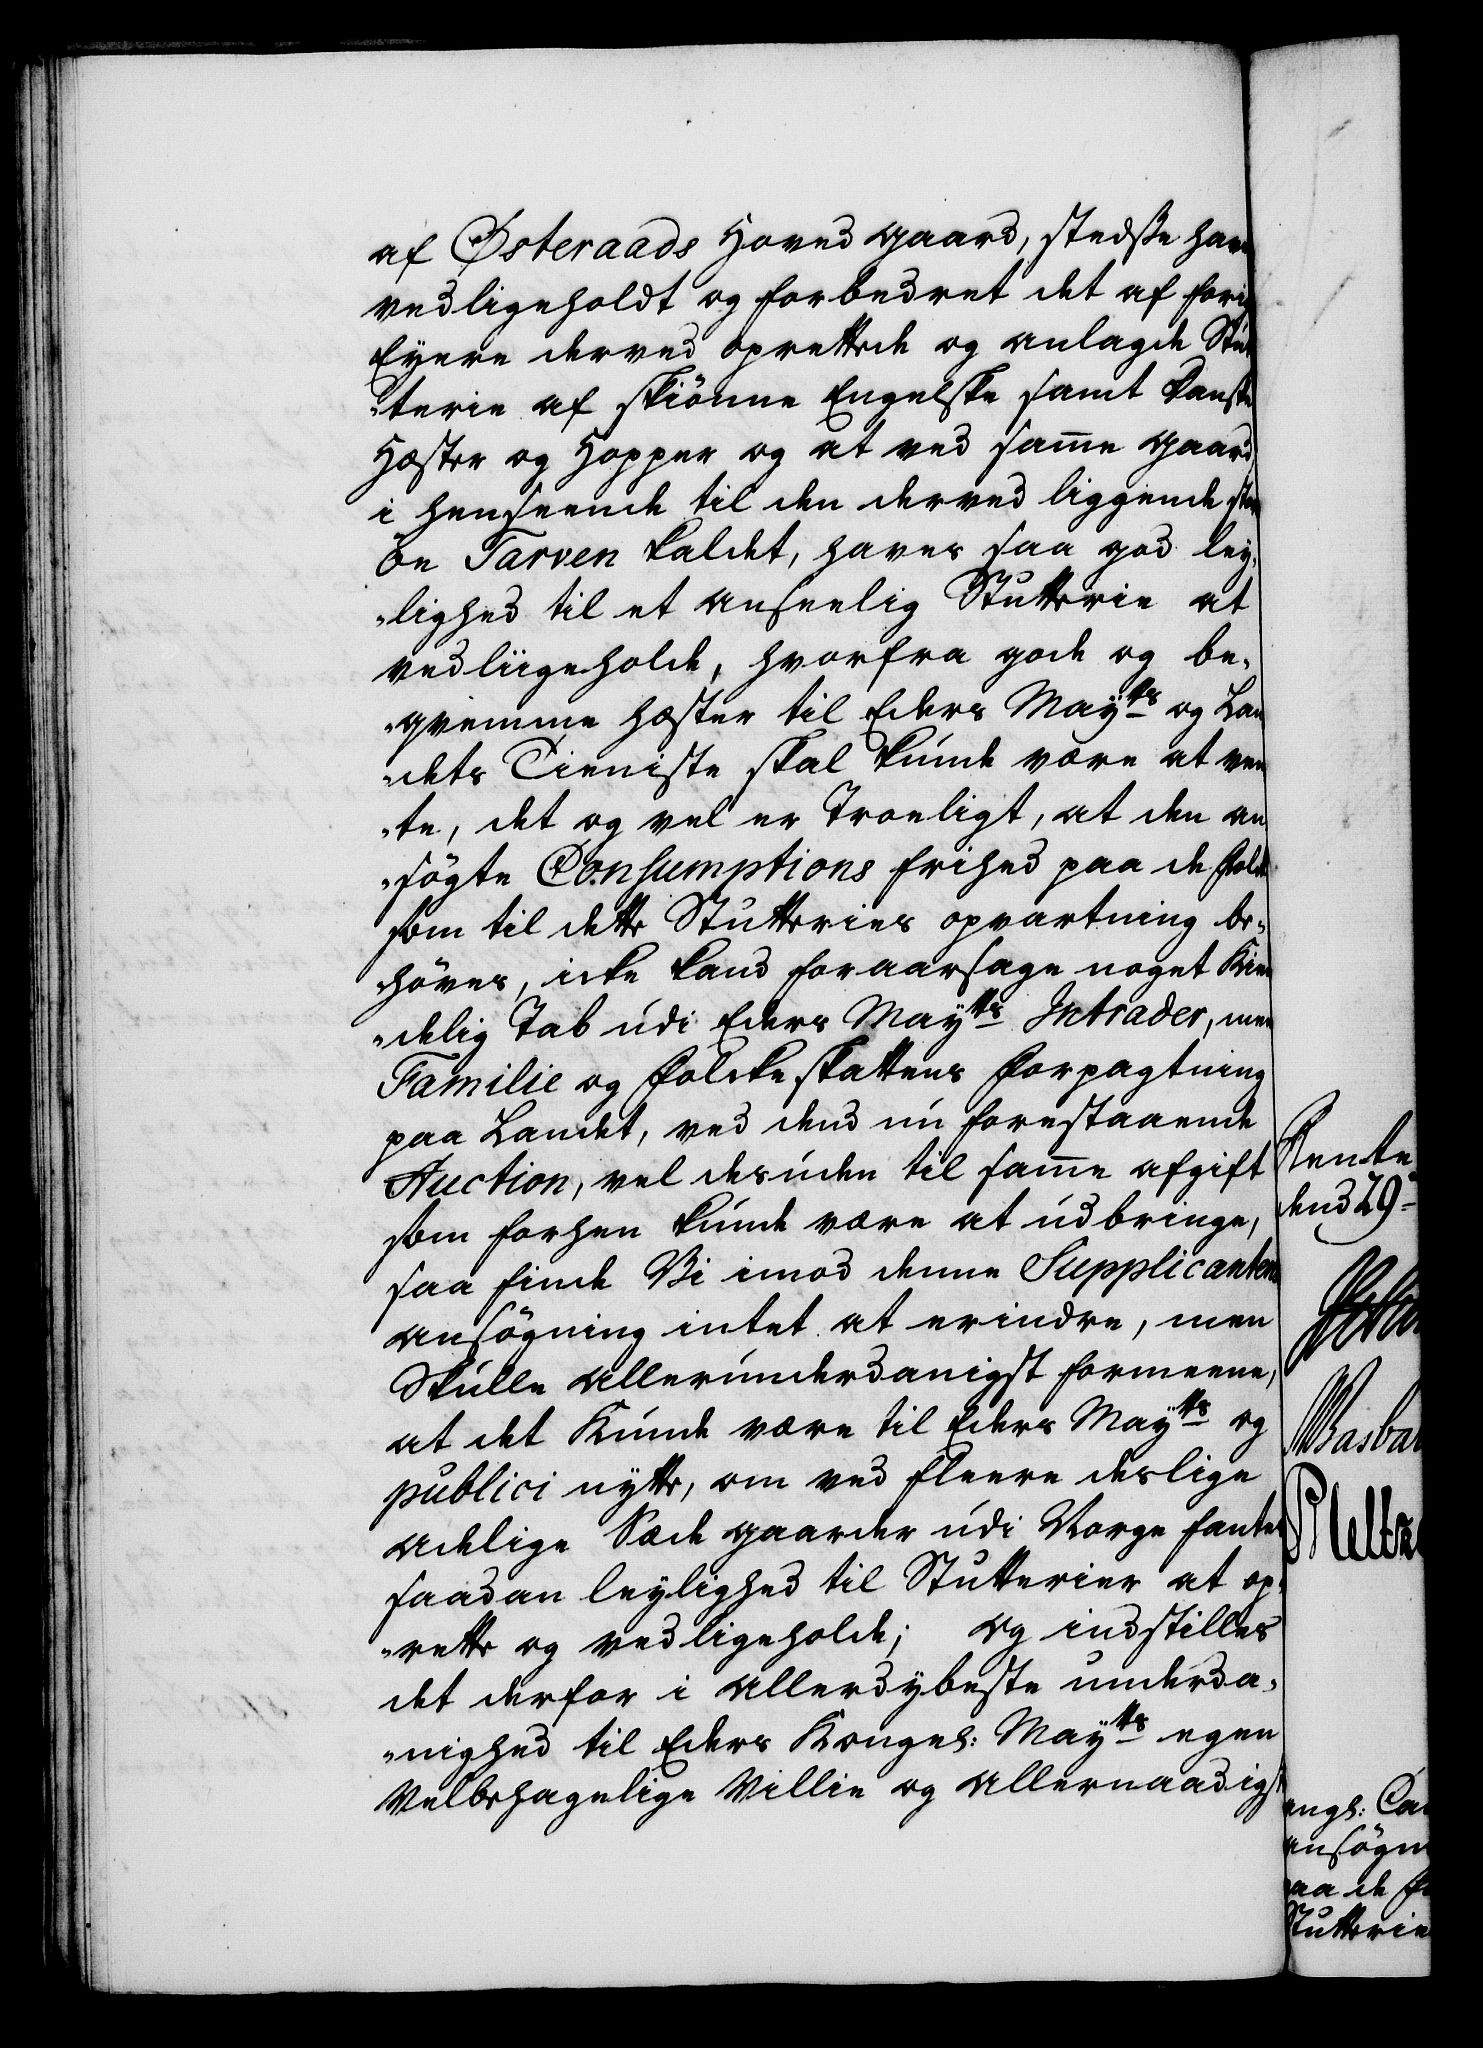 af Østeraads Hoved gaard, stedsse have
vedligeholdt og forbedret det af forig
Eyere derved oprettede og anlagde Stut
„terie af skiönne Engelske samt Danske
Hæster og Hopper og at ved samme gaard
i henseende til den derved liggende
öe Tarven kaldet, haves saa god ley„
„lighed til et anseelig Stutterie at
vedliigeholde, hvorfra gode og be„
„qvemme hæster til Eders Mayts og Lan
„dets Tieniste skal kunde være at ven
„te, det og vel er Troeligt, at den an
„søgte Consumptions frihed paa de folk
som til dette Stutteries opvartning be„
„höves, icke kand foraarsage noget Kien
„delig Tab udi Eders Mayts Intrader, men
Familie og Folckeskattens Forpagtning
paa Landet, ved dend nu forestaaende
Auction, vel desuden til samme afgift
som forhen kunde være at udbringe,
saa finde Vi imod denne Supplicantens
ansögning intet at erindre, men
Skulle allerunderdanigst formeene,
at det Kunde være til Eders Mayts og
publici nytte, om ved fleere deslige
adelige Sæde gaarder udi Norge fantes
saadan leylighed til Stutterier at op„
„rette og vedligeholde; Og indstilles
det derfor i allerdybeste underda„
„nighed til Eders Kongel: Mayts egen
Velbehagelige Villie og allernaadigst
Rente
dend 29
ongl: Ca
ansögn
paa de
Stutterie